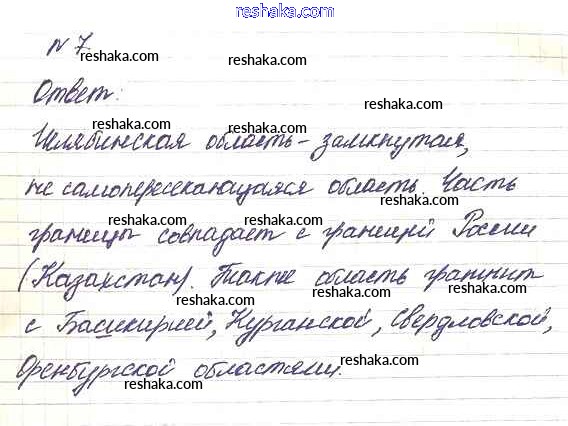 reshaka.com
№ 7
reshaka.com reshaka.com reshaka.com
Ответ:
reshaka.com reshaka.com
Челябинская область - замкнутая,
reshaka.com reshaka.com
не самопересекающаяся область. Часть
reshaka.com reshaka.com
границы совпадает с границей России
(Казахстан). Также область граничит
reshaka.com reshaka.com
с Башкирией, Курганской, Свердловской,
Оренбургской областями.
reshaka.com reshaka.com